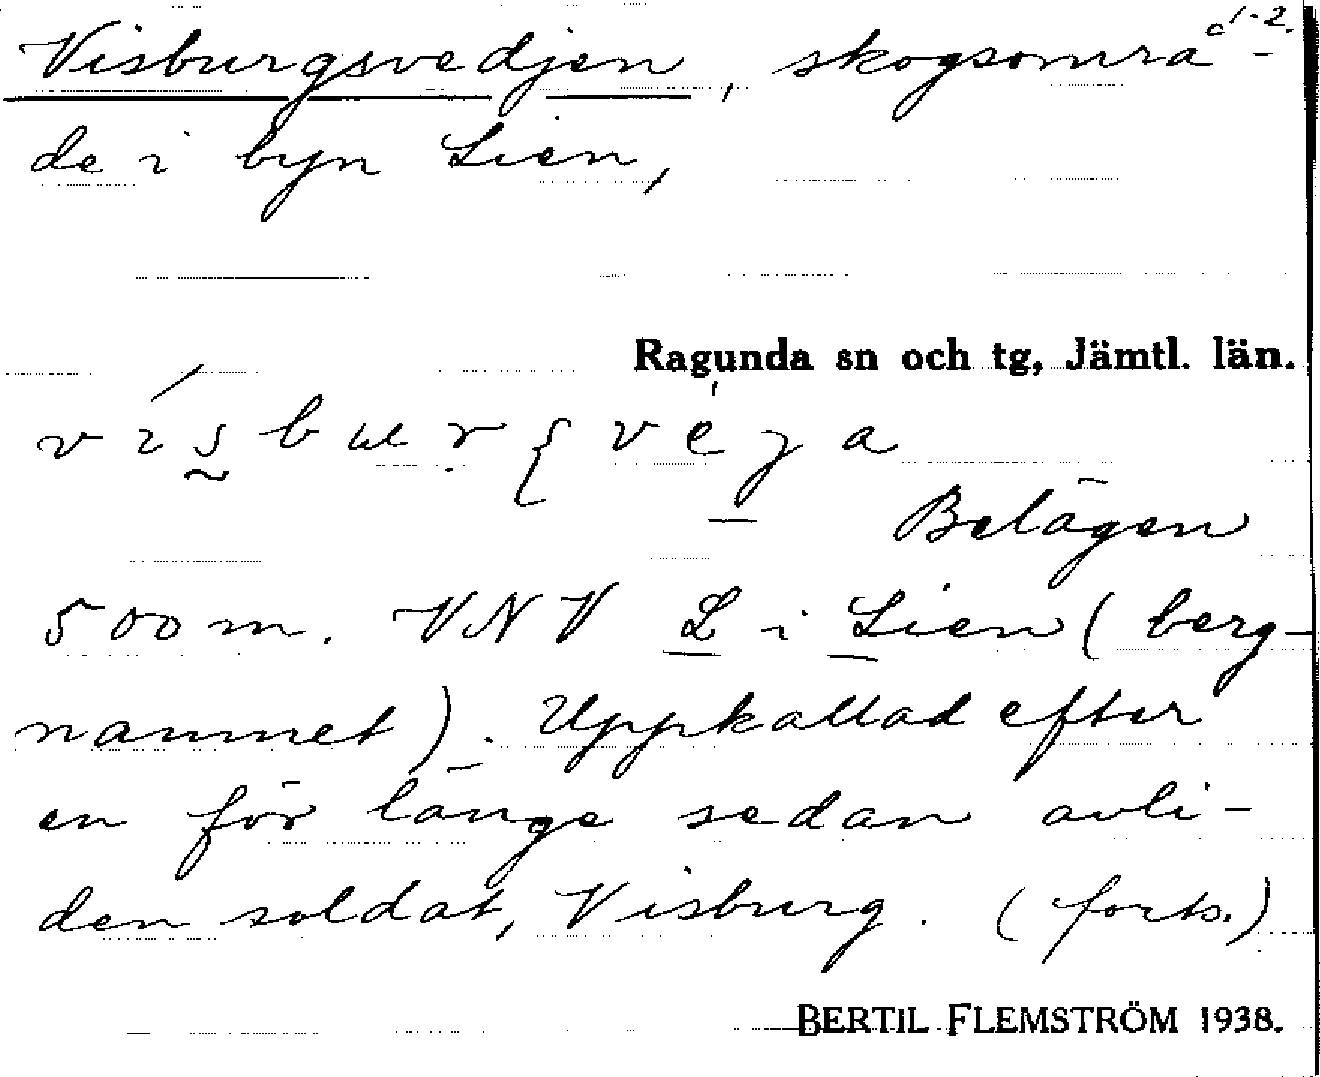 1-2.
Visburgsvedjen, skogsområ-
de i byn Lien,
Ragunda sn och tg, Jämtl. län.
Belägen
500 m. VNV L i Lien (berg-
namnet). Uppkallad efter
en för länge sedan avli-
den soldat, Visburg. (forts.)
BERTIL FLEMSTRÖM 1938.